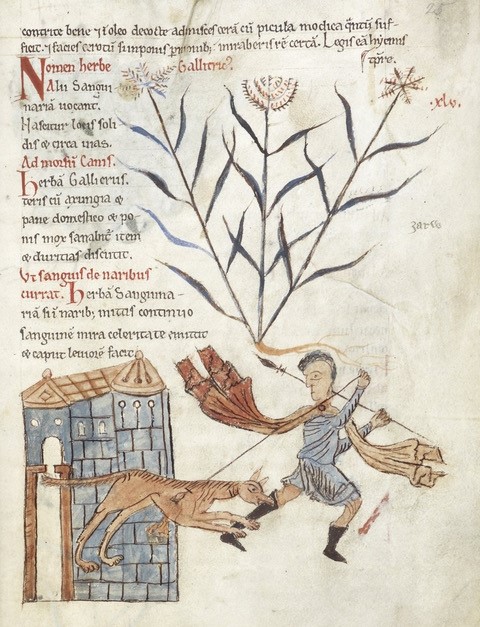 contrite bene & i oleo decocte admisces cerā cū picula modica q̄ntū suf-
ficit. & facies cerotū sī inponis miraberis rē certā. Legis eā hyemis
tp̄re.
Nomen herbe Gallitric̄.
Alii Sangui-
nariā uocant.
Nascitur locis soli
dis & circa uias.
.xlv.
Ad morsū Canis.
Herbā
teris cū axungia &
pane domestico & po-
nis mox sanabit̄ item
& duritias discutit.
Vt sanguis de naribus
currat. Herbā Sanguina-
riā si ī narib; mittis continuo
sanguinē mira celeritate emittit
& caput leuiorē facit.